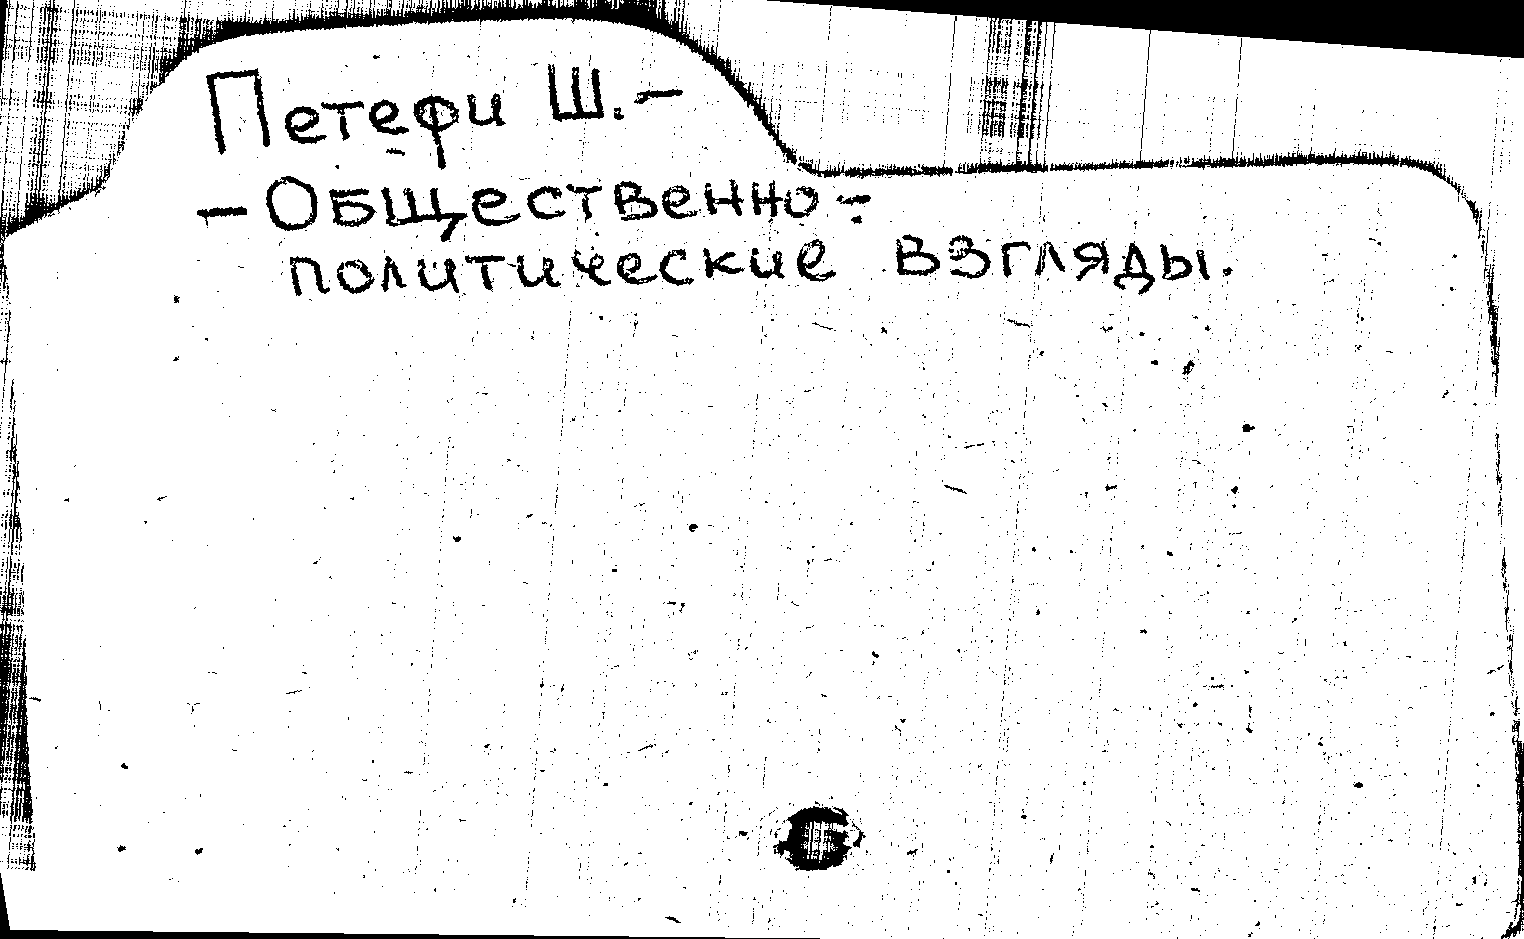 Петефи Ш. –
– Общественно-
политические взгляды.